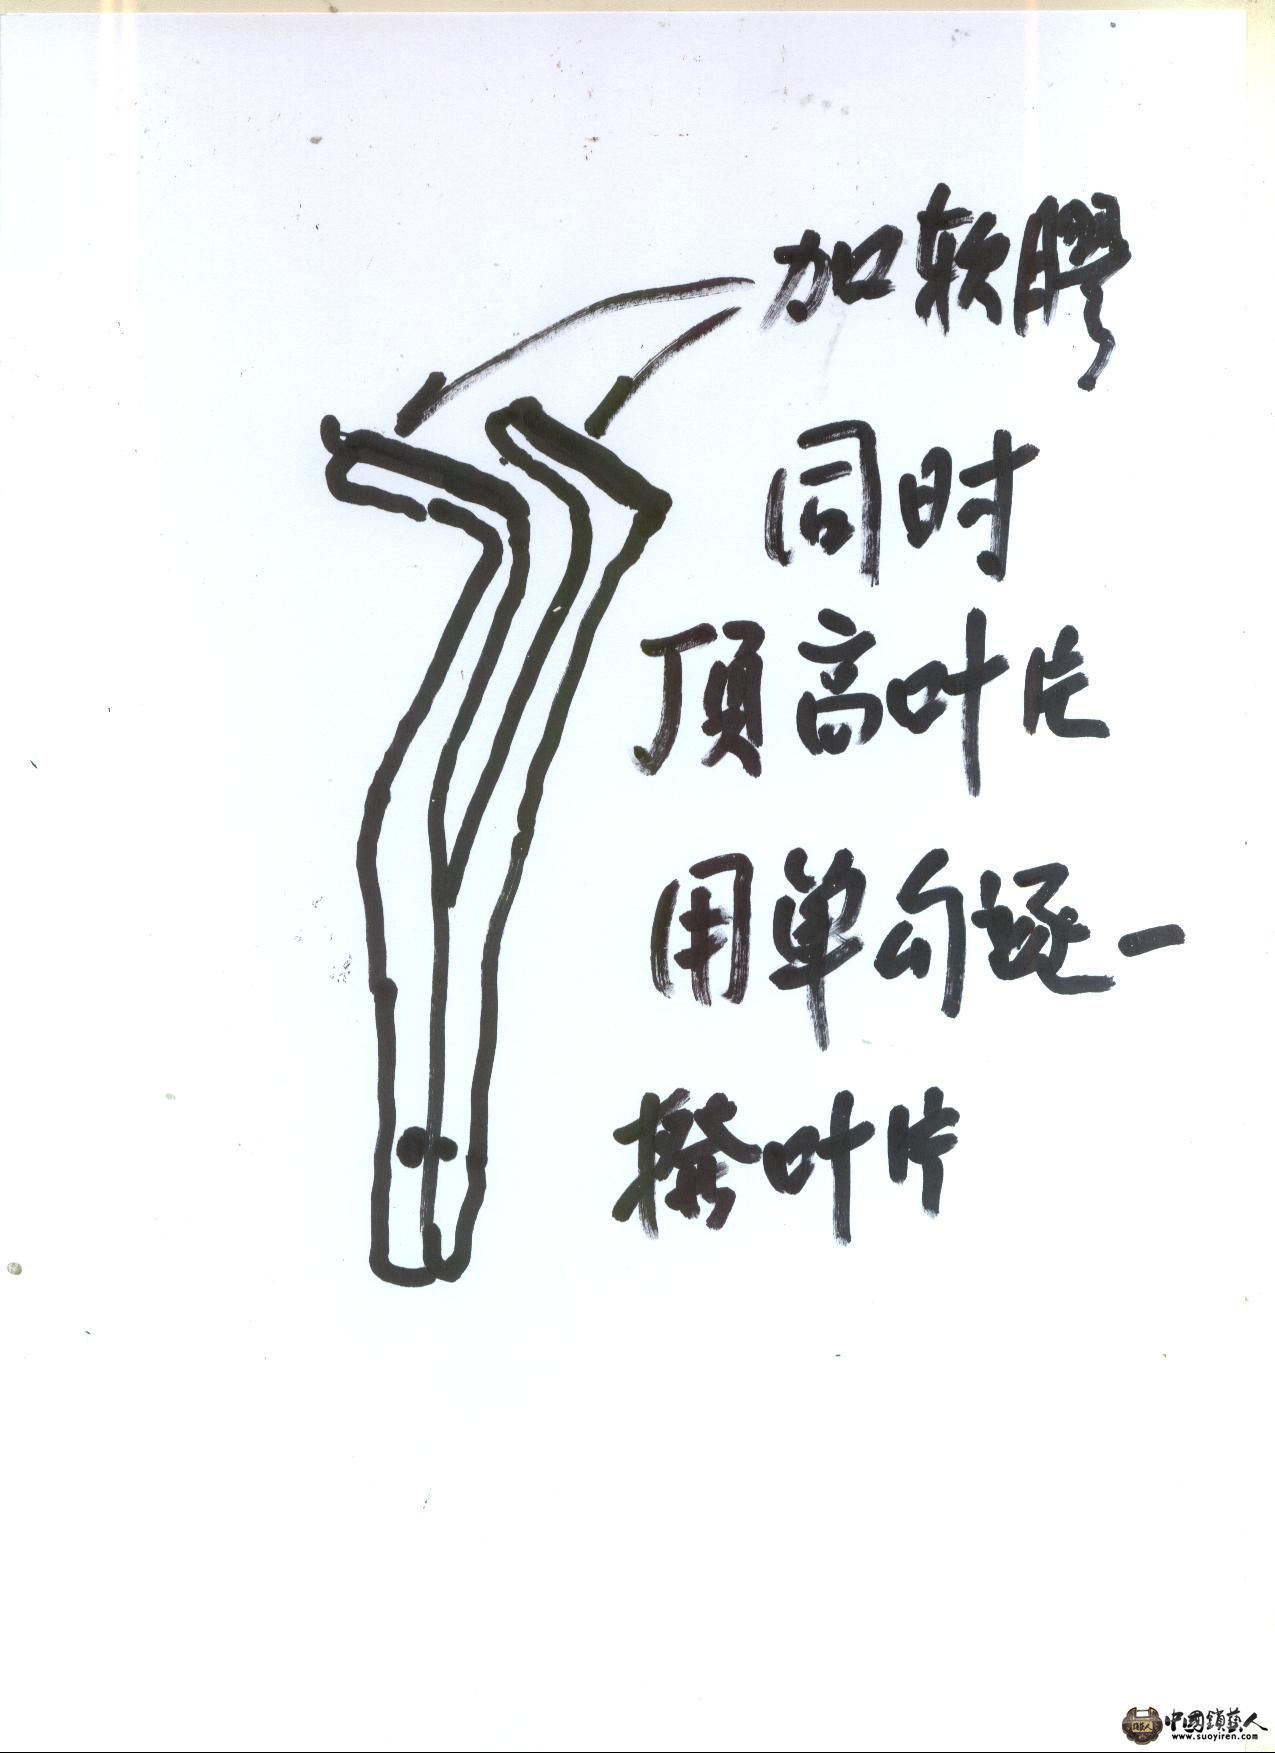 加软膠
同时
頂高叶片
用单勾逐一
撥叶片
中國鎖藝人
www.suoyiren.com